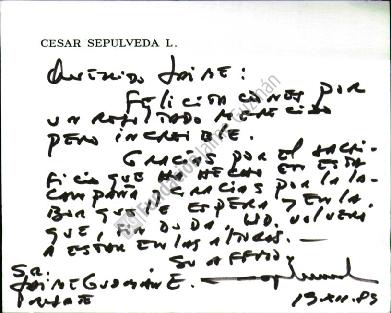 CESAR SEPULVEDA L.
QUERIDO JAIME:
FELICITACIONES POR
UN RESULTADO MERECIDO
PERO INCREIBLE.
GRACIAS POR EL SACRI-
FICIO QUE HA HECHO EN ESTA
CAMPAÑA Y GRACIAS POR LA LA-
BOR QUE LE ESPERA Y EN LA
QUE, SIN DUDA, UD. VOLVERA
A ESTAR EN LAS ALTURAS.—
SU AFFMO.
SR.
JAIME GUZMAN E.
PRESENTE
19-XII-89